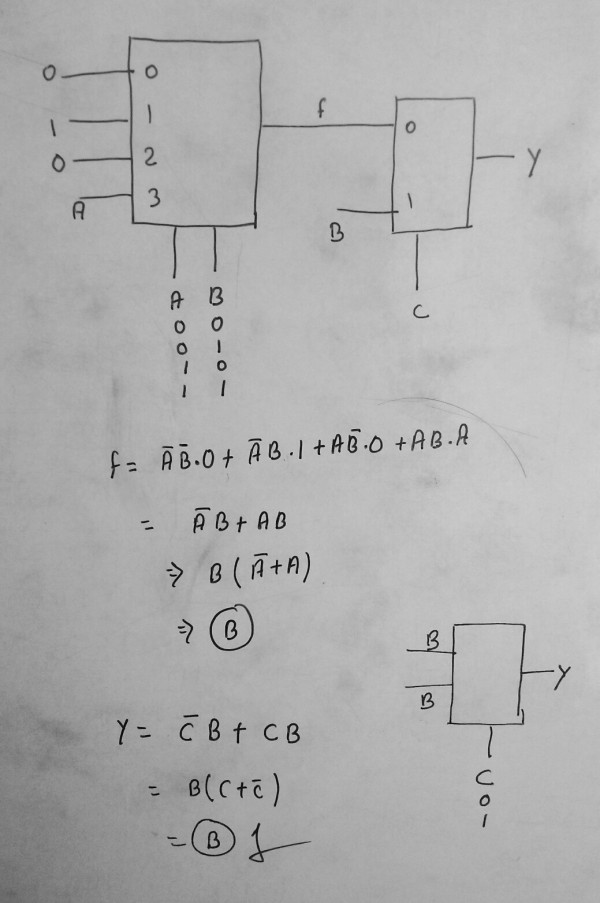 0 0
1 1
0 2
A 3
f
0
Y
B 1
A B
0 0
0 1
1 0
1 1
C
f = A̅B̅.0 + A̅B.1 + AB̅.0 + AB.A
= A̅B + AB
⇒ B(A̅+A)
⇒ B
B
B
Y
C
0
1
Y = C̅B + CB
= B(C+c̅)
= B